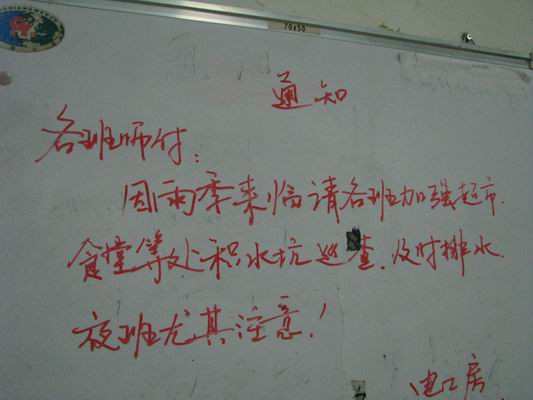 70x50
通知
各班师付:
因雨季来临请各班加强超市.
食堂等处积水坑巡查.及时排水.
夜班尤其注意!
电工房